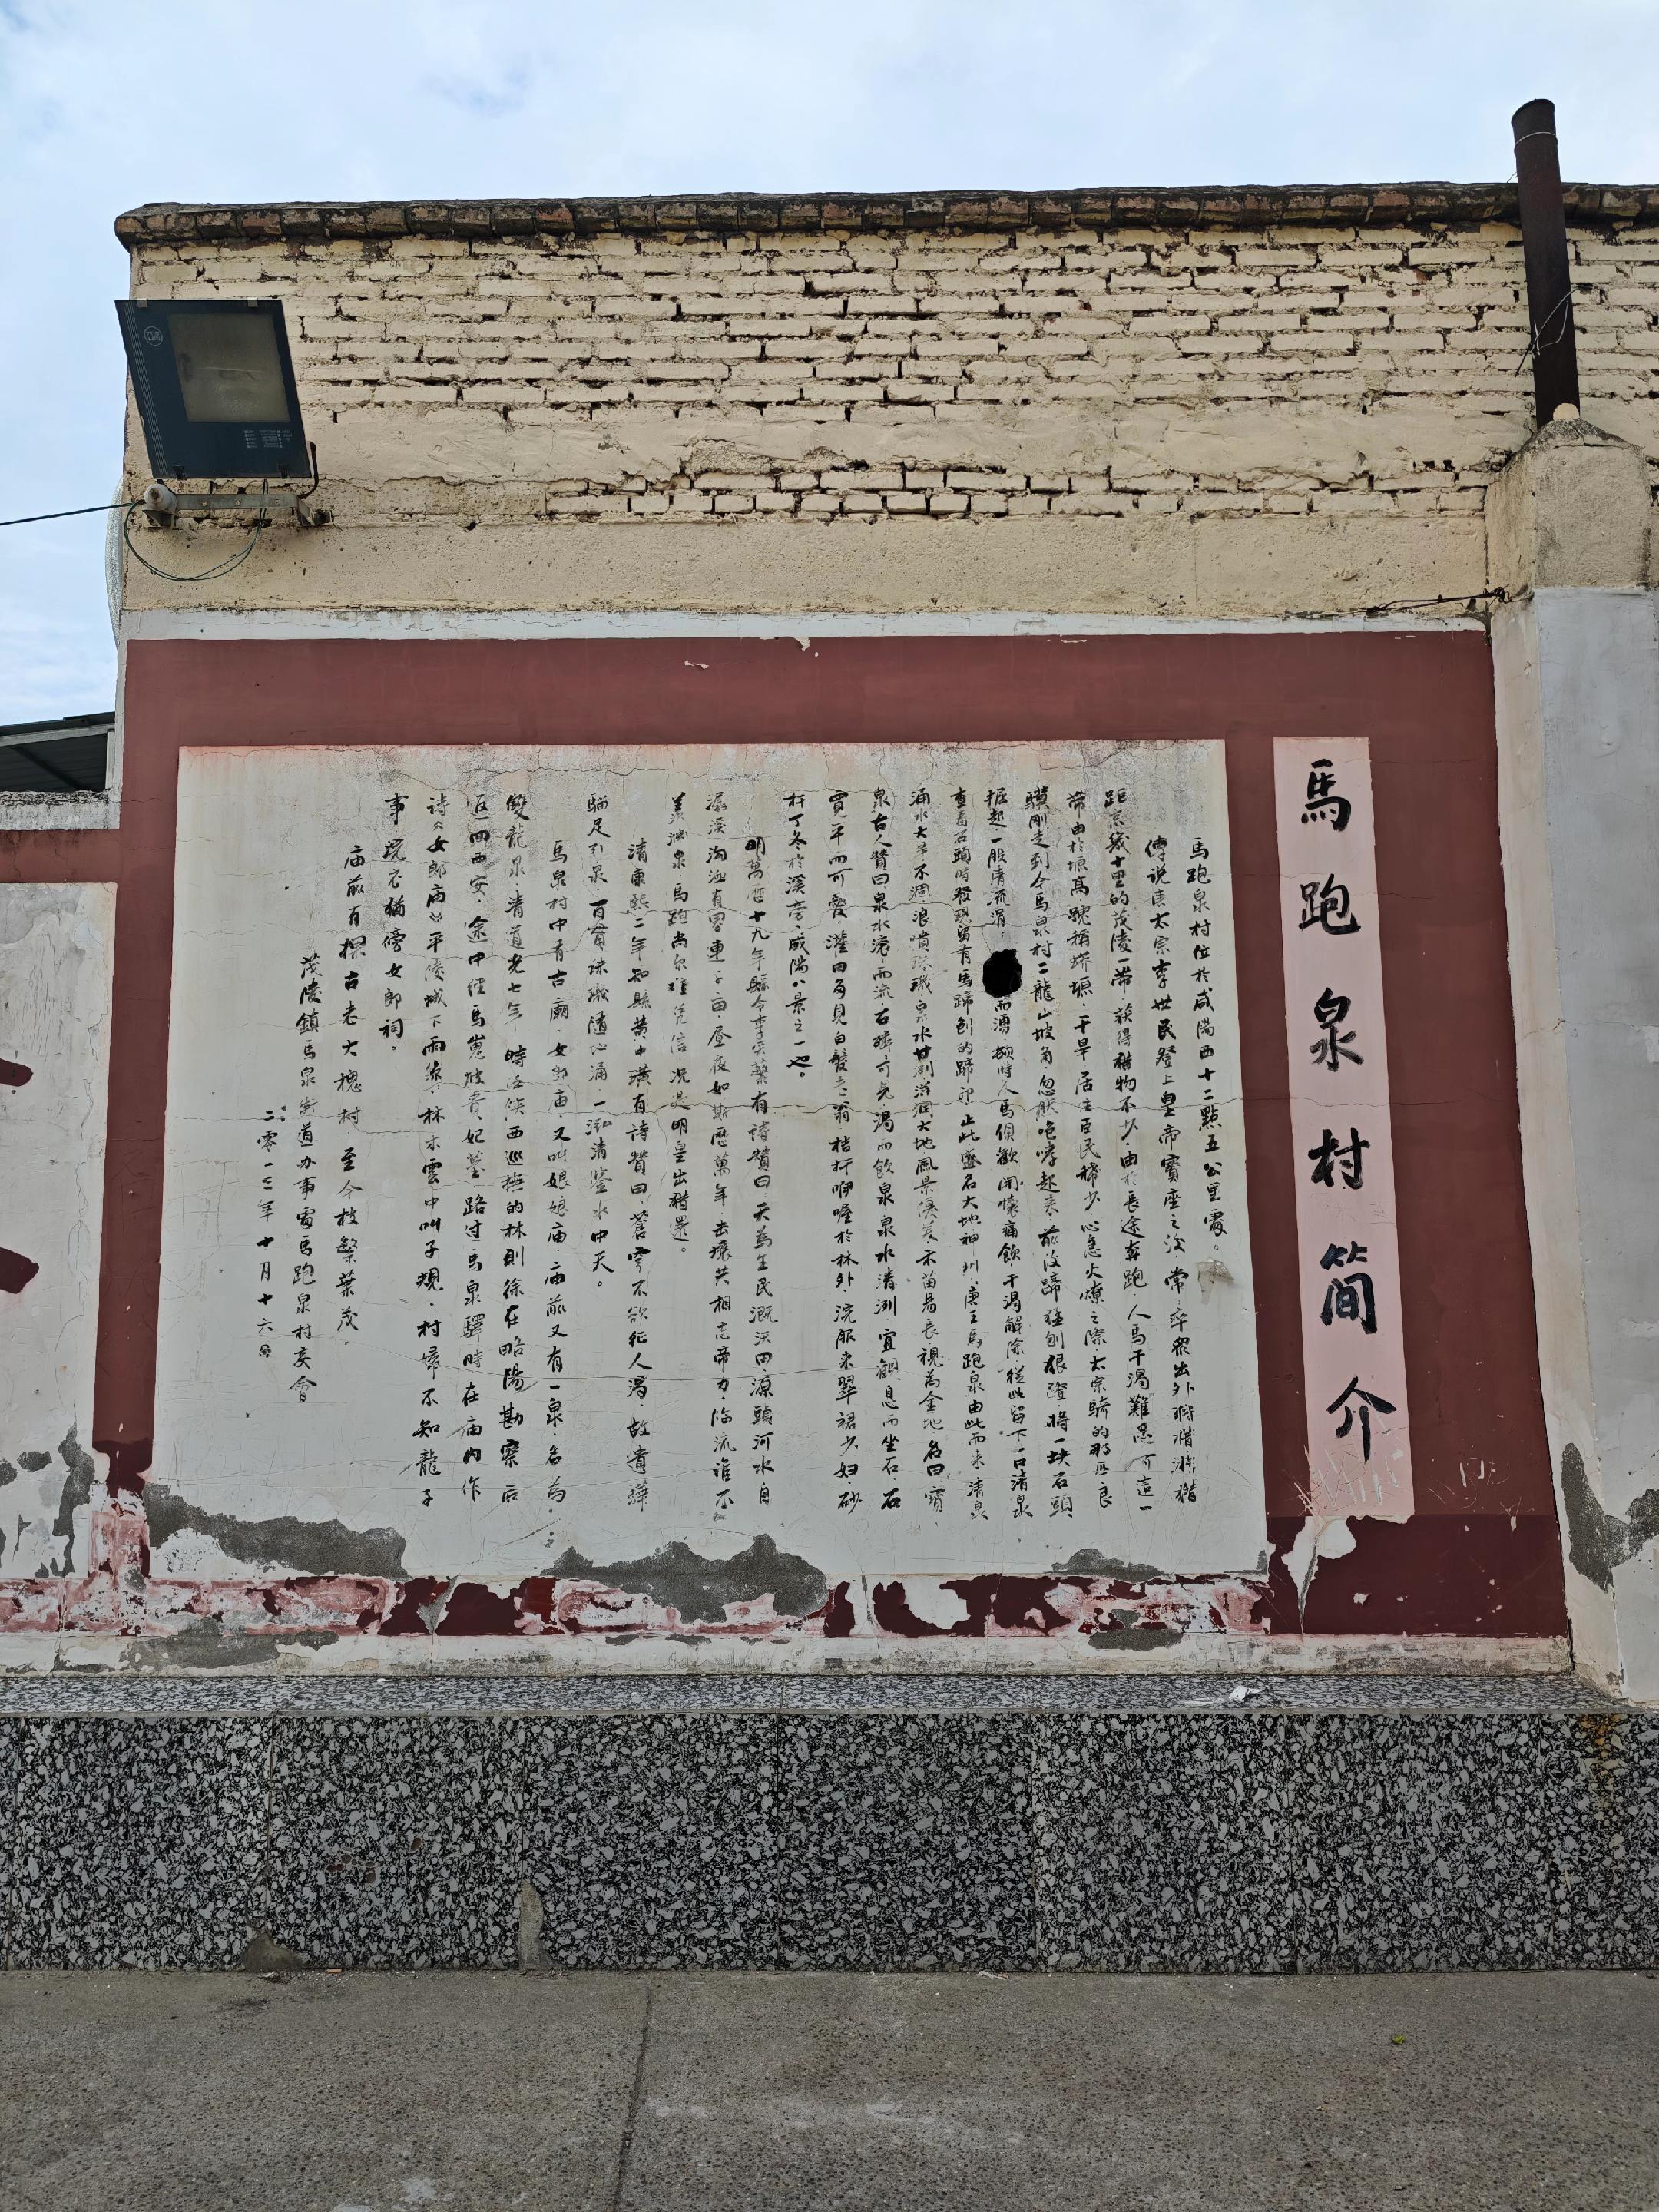 馬跑泉村简介
馬跑泉村位於咸陽西十二點五公里處。
傳説唐太宗李世民登上皇帝寶座之後,常率衆出外狩猎
距京畿十里的茂陵一带,获得猎物不少,由於長途奔跑,人馬干渴難忍,可這一
带由於塬高,號稱蟒塬,干旱,居住百民稀少,心急火燎之際,太宗騎的那匹良
驥刚走到今馬泉村二龍山坡角,忽然咆哮起来,前後蹄猛刨狠蹬,將一块石頭
掘起,一股清流涓 而湧,頓時人馬俱歡,開懷痛飲,干渴解除,從此留下一口清泉
查看石頭時發現留有馬蹄刨的蹄印,止此盛名大地神州,唐王馬跑泉由此而来,清泉
涌水大旱不涸,浪噴珠璣,泉水甘洌滋润大地,風景優美,禾苗易長,視為金地,名曰寶
泉,古人贊曰泉水滚而流,石磷可 渴而飲泉,泉水清洌,宜觀息而坐石,石
寬平而可 ,灌田每見白髮老翁,桔杆咿喔於林外,浣服来翠裙少妇,砂
杆丁冬於溪旁,咸陽八景之一也。
明萬歷十九年縣令李采蘩有詩贊曰,天為生民溉沃田,源頭河水自
潺溪,沟洫有畧連千亩,昼夜如斯歷萬年,击壤共相忘帝力,临流谁不
羡渊泉,馬跑尚泉難凭信,况是明皇出猎還。
清康熙二年知縣黄中璜有詩贊曰,蒼穹不欲征人渴,故遣驊
骝足引泉,百實珠璣随地涌,一泓清鉴水中天。
馬泉村中有古廟,女郎庙,又叫娘娘庙,庙前又有一泉,名為
雙龍泉,清道光七年,時任陕西巡撫的林則徐在略陽勘察后
返回西安,途中經馬嵬坡贵妃墓,路过馬泉驛時,在庙内作
诗《女郎庙》平陵城下雨繚,林木雲中叫子規,村婦不知龍子
事,浣衣猶傍女郎祠。
庙前有棵古老大槐树,至今枝繁葉茂。
茂陵鎮馬泉街道办事處馬跑泉村委會
二零一三年十月十六日